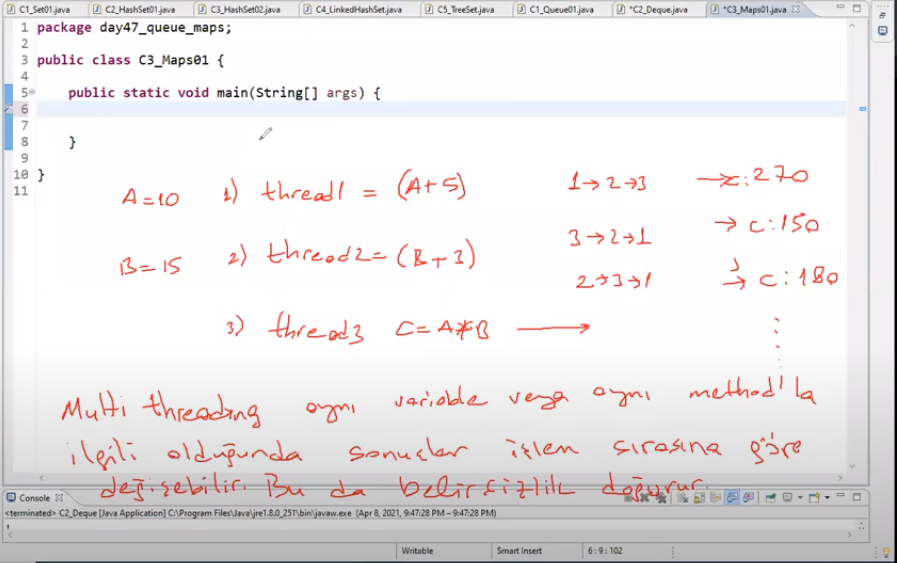 C1_Set01.java C2_HashSet01.java C3_HashSet02.java C4_LinkedHashSet.java C5_TreeSet.java C1_Queue01.java *C2_Deque.java *C3_Maps01.java
1 package day47_queue_maps;
2
3 public class C3_Maps01 {
4
5 public static void main(String[] args) {
6
7
8 }
9
10 }
11
A=10 1) thread1 = (A+5) 1→2→3 → c:270
B=15 2) thread2= (B+3) 3→2→1 → c:150
2→3→1 → c:180
3) thread3 C=A*B →
Multi threading aynı variable veya aynı method'la
ilgili olduğunda sonuçlar işlem sırasına göre
değişebilir. Bu da belirsizlik doğurur.
Console
<terminated> C2_Deque [Java Application] C:\Program Files\Java\jre1.8.0_251\bin\javaw.exe (Apr 8, 2021, 9:47:28 PM – 9:47:28 PM)
Writable Smart Insert 6 : 9 : 102